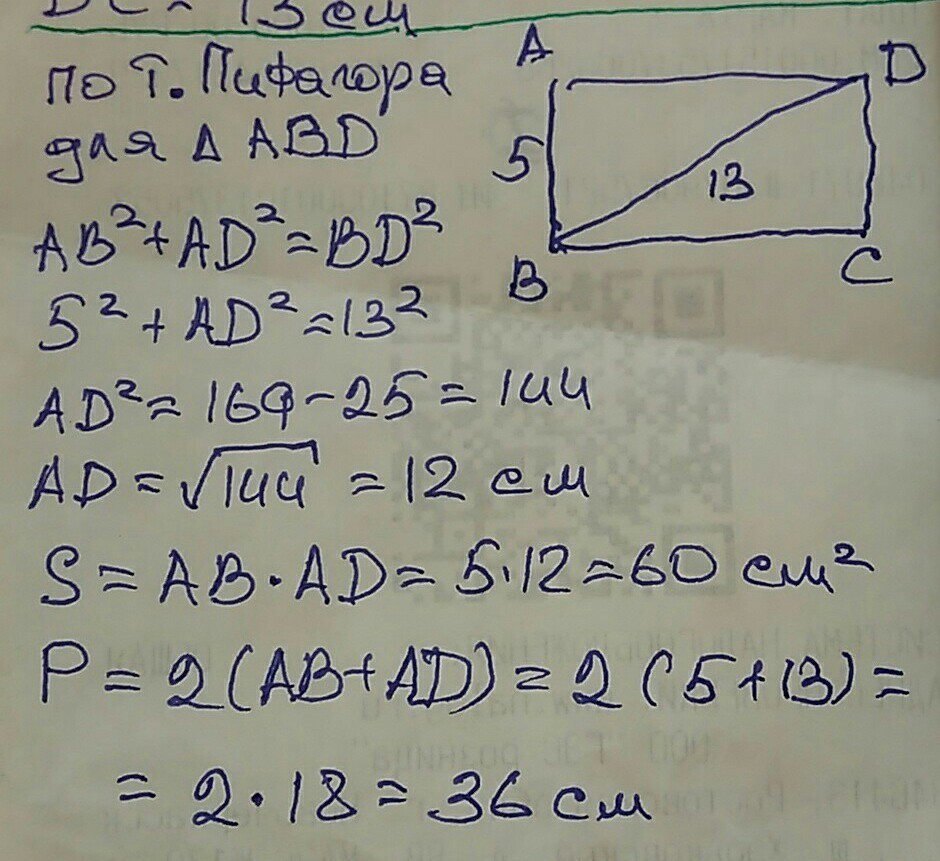 = 13 см
По Т. Пифагора
для Δ ABD
AB²+AD²=BD²
5² + AD²=13²
AD²= 169-25 = 144
AD = √144 = 12 см
S = AB·AD= 5·12=60 см²
P = 2(AB+AD)= 2(5+13)=
= 2·18 = 36 см
A
D
5
13
B
C